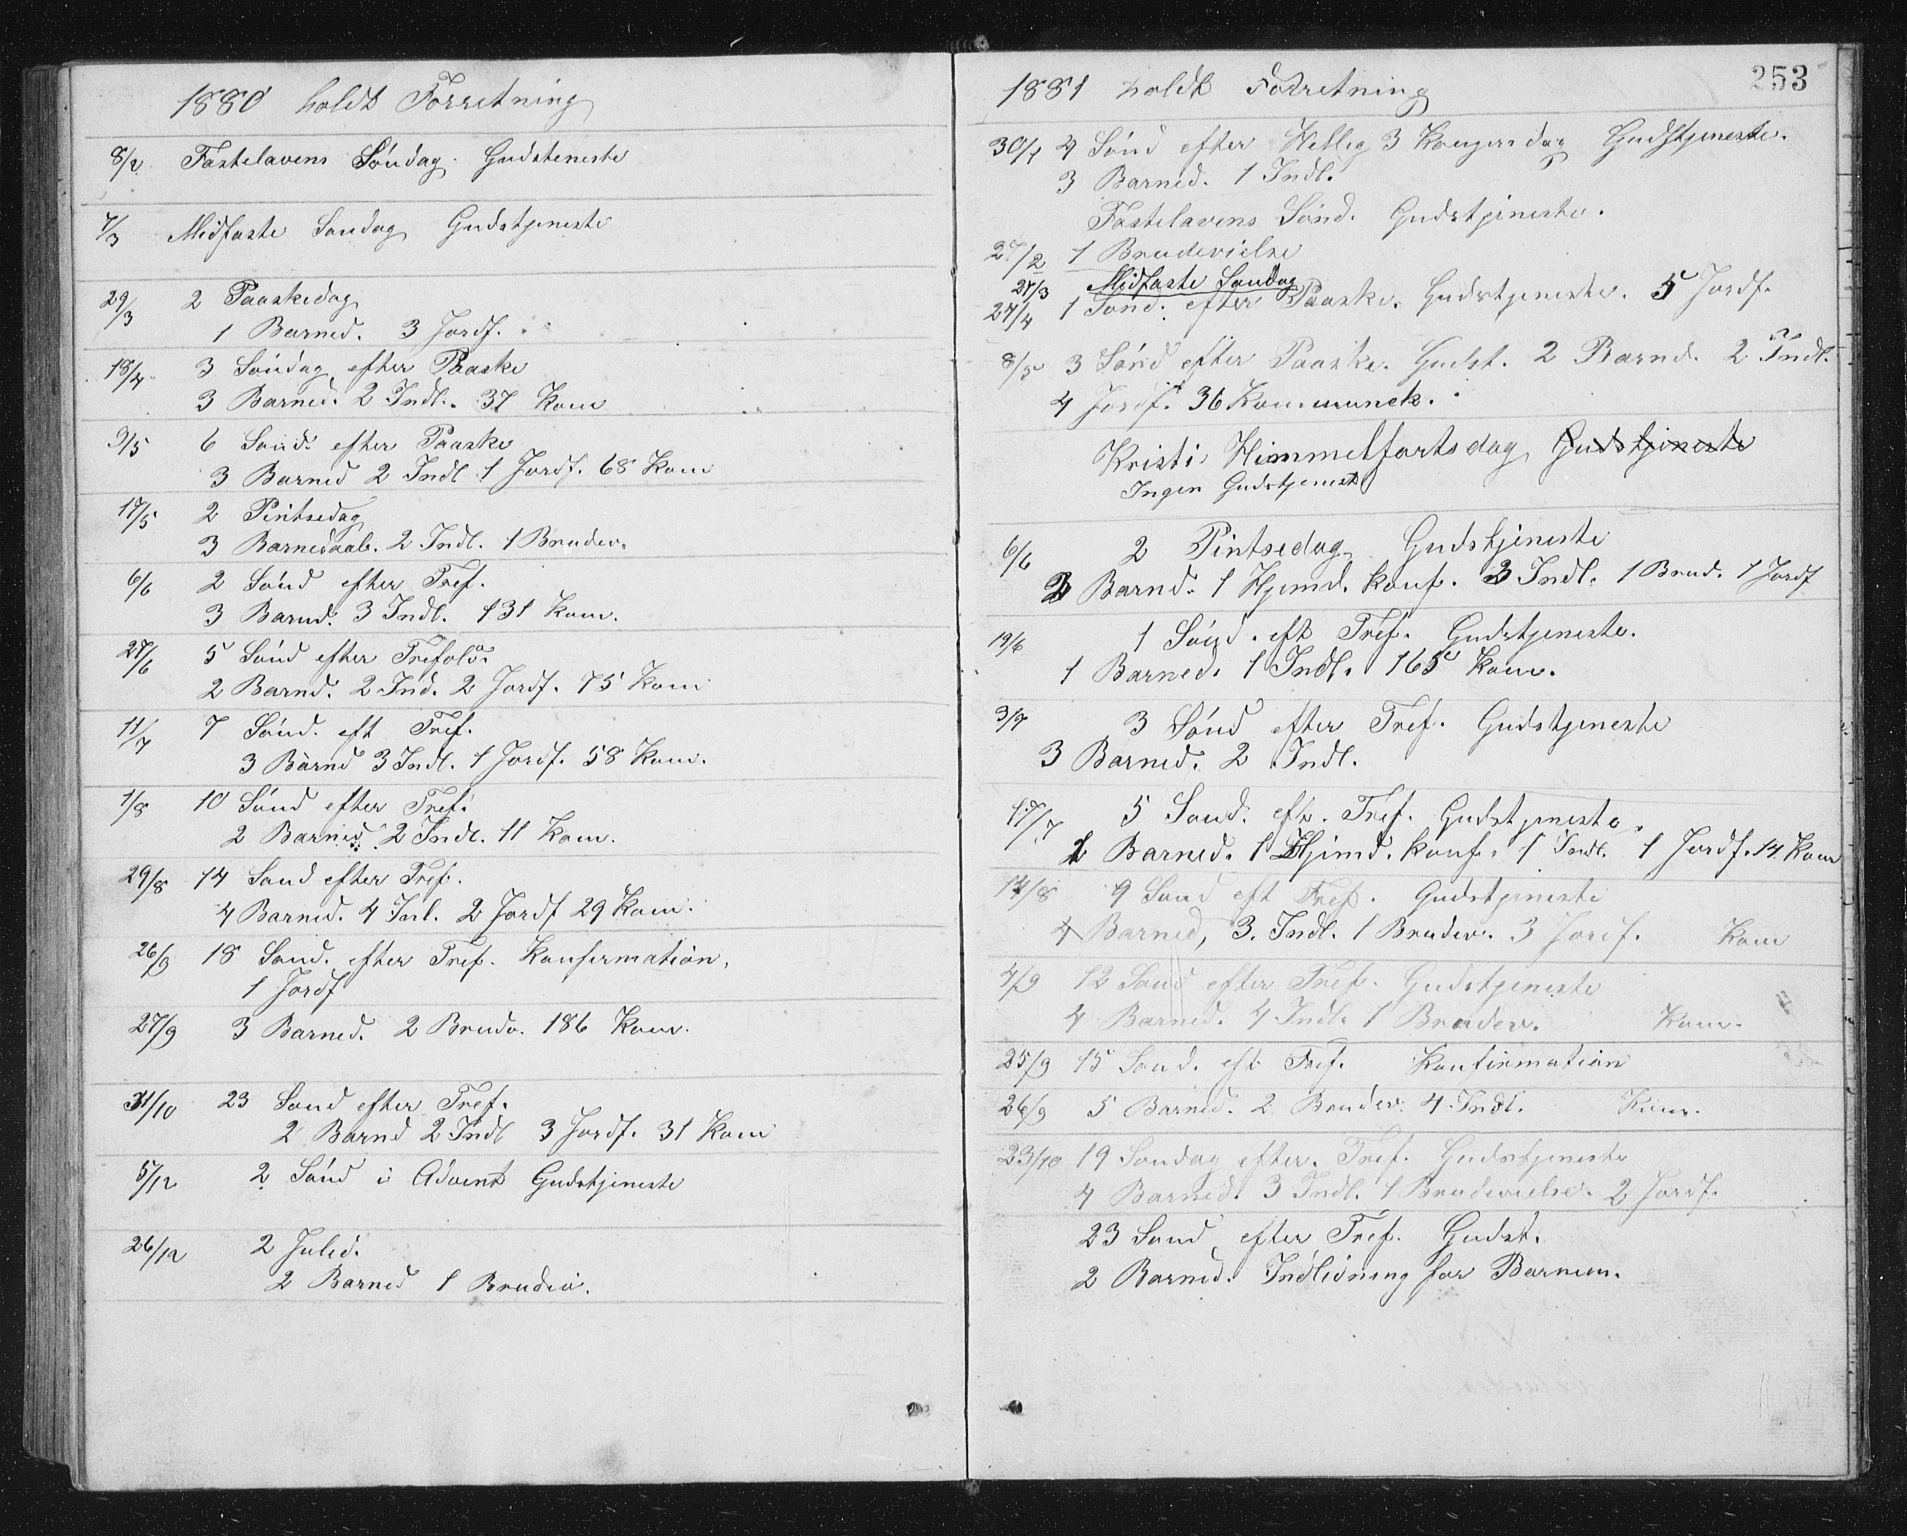 1880 holdt Forretning
8/2 Fastelavens Söndag. Gudsteneste
7/3 Midfaste Söndag Gudstjeneste
29/3 2 Paaskedag
1 Barned. 3 Jordf.
18/4 3 Söndag efter Paaske
3 Barned. 2 Indl. 37 Kom
9/5 6 Sönd. efter Paaske
3 Barned 2 Indl 1 Jordf. 68 Kom
17/5 2 Pintsedag
3 Barnedaab. 2 Indl. 1 Brudev.
6/6 2 Sönd efter Tref.
3 Barnd. 3 Indl. 131 Kom.
27/6 5 Sönd efter Trefol
2 Barnd. 2 Ind. 2 Jordf. 75 Kom
11/7 7 Sönd. eft Tref.
3 Barnd 3 Indl. 1 Jordf. 58 Kom.
1/8 10 Sönd efter Tref.
2 Barned. 2 Indl. 11 Kom.
29/8 14 Sönd efter Tref.
4 Barned. 4 Inl. 2 Jordf 29 Kom.
26/9 18 Sönd. efter Tref. Konfirmation.
1 Jordf
27/9 3 Barned. 2 Brudv. 186 Kom.
31/10 23 Sönd efter Tref.
2 Barnd 2 Indl 3 Jordf. 31 Kom
5/12 2 Sönd i Advent Gudstjeneste
26/12 2 Juled.
2 Barned 1 Brudev.
253
1881 holdt Forretning
30/1 4 Sönd efter Hellig 3 Kongersdag Gudstjeneste.
3 Barned. 1 Indl.
Fastelavens Sönd. Gudstjeneste.
27/2 1 Brudevielse
27/3 Midfaste Söndag
27/4 1 Sönd. efter Paaske. Gudstjeneste. 5 Jordf.
8/5 3 Sönd efter Paaske. Gudst. 2 Barnd. 2 Indl.
4 Jordf. 36 Kommunek.
Kristi Himmelfartsdag Gudstjeneste
Ingen Gudstjeneste
6/6 2 Pintsedag Gudstjeneste
Barnd. 1 Hjemd. konf. 3 Indl. 1 Brud. 1 Jordf
19/6 1 Sönd. eft Tref. Gudstjeneste.
1 Barned. 1 Indl. 165 Kom.
3/7 3 Sönd efter Tref. Gudstjeneste
3 Barned. 2 Indl.
17/7 5 Sönd. eft. Tref. Gudstjeneste.
Barned. 1 Hjemd. konf. 1 Indl. 1 Jordf. 14 Kom
14/8 9 Sönd eft Tref. Gudstjeneste
4 Barned, 3. Indl. 1 Brudev. 3 Jordf. Kom
4/9 12 Sönd efter Tref. Gudstjeneste
4 Barned. 4 Indl. 1 Brudev. Kom.
25/9 15 Sönd. eft Tref. Konfirmation
26/9 5 Barned. 2 Brudev. 4 Indl. Kom.
23/10 19 Söndag efter. Tref. Gudstjeneste
4 Barned. 3 Indl. 1 Brudevielse. 2 Jordf.
23 Sönd efter Tref. Gudst.
2 Barned. Indledning for Barnem.